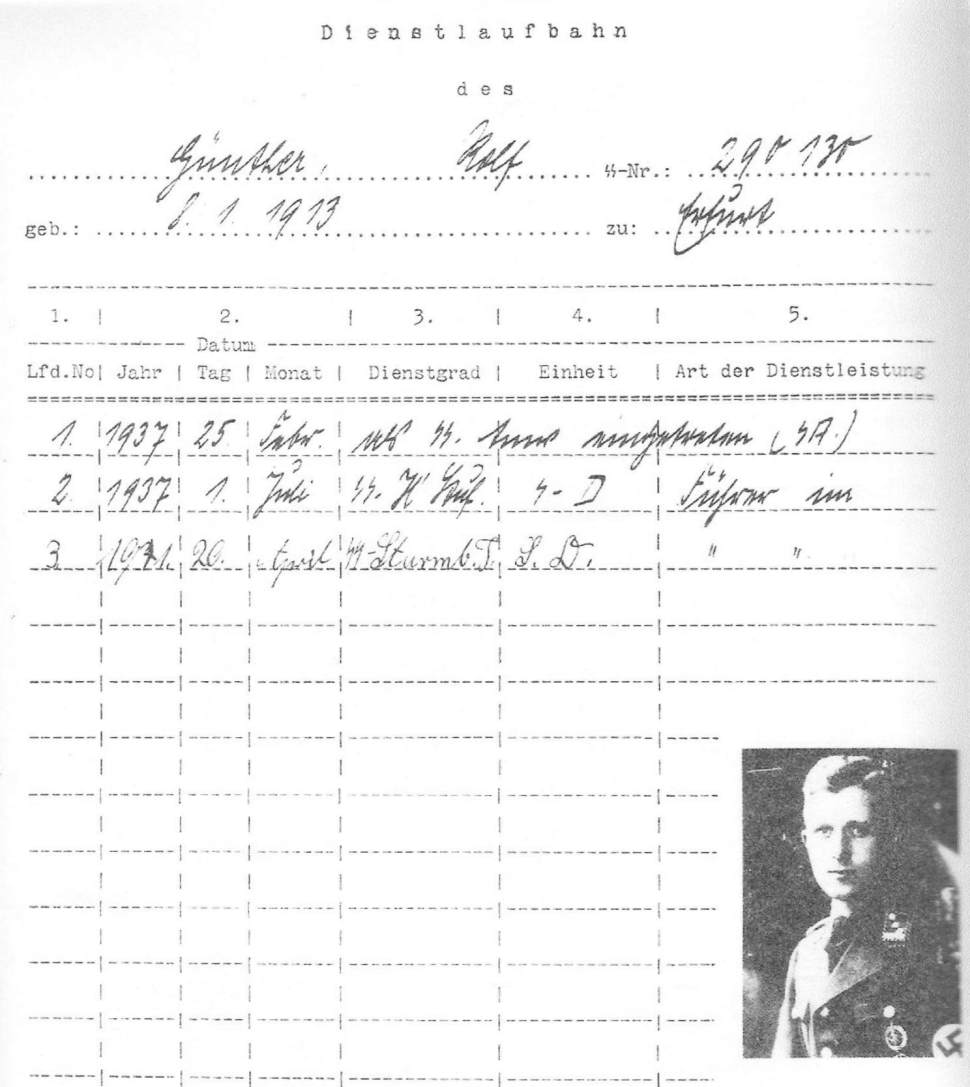 Dienstlaufbahn
des
Günther, Rolf ᛋᛋ-Nr.: 290 130
geb.: 8. 1. 1913 zu: Erfurt
1. | 2. | 3. | 4. | 5.
Datum
Lfd.No| Jahr | Tag | Monat | Dienstgrad | Einheit | Art der Dienstleistung
1. | 1937 | 25 | Febr. | als ᛋᛋ. eingetreten (SA.)
2. | 1937 | 1. | Juli | ᛋᛋ. | S-D | Führer im
3. | 1941. | 20. | April | ᛋᛋ-Sturmb.F. | S.D. | " "